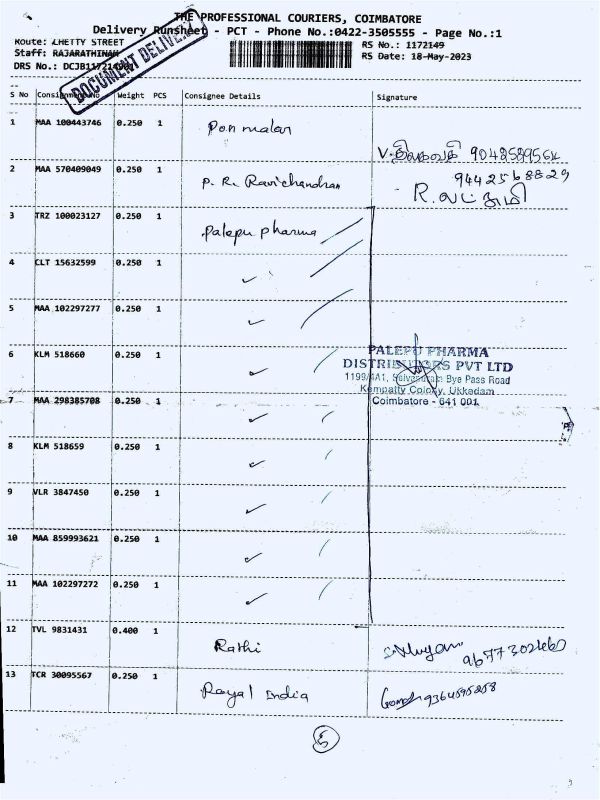 THE PROFESSIONAL COURIERS, COIMBATORE
Delivery Runsheet - PCT - Phone No.:0422-3505555 - Page No.:1
Route: CHETTY STREET
RS No.: 1172149
Staff: RAJARATHINAM
RS Date: 18-May-2023
DRS No.:
DOCUMENT DELIVERY
S No Consignment No Weight PCS Consignee Details Signature
1 MAA 100443746 0.250 1 Pon malar
V. 9048589564
2 MAA 570409049 0.250 1 P. R. Ravichandran 9442568829
R. லட்சுமி
3 TRZ 100023127 0.250 1 Palepu pharma
4 CLT 15632599 0.250 1 ✓
5 MAA 102297277 0.250 1 ✓
6 KLM 518660 0.250 1 ✓
PALEPU PHARMA
DISTRIBUTORS PVT LTD
1199/4A1, Selvapuram Bye Pass Road
Kempatty Colony, Ukkadam
Coimbatore - 641 001.
7 MAA 298385708 0.250 1 ✓
8 KLM 518659 0.250 1 ✓
9 VLR 3847450 0.250 1 ✓
10 MAA 859993621 0.250 1 ✓
11 MAA 102297272 0.250 1 ✓
12 TVL 9831431 0.400 1 Rathi
13 TCR 30095567 0.250 1 Royal India 9364595258
5